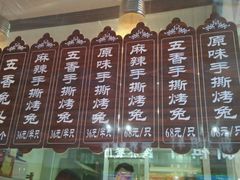 五香兔头
个
麻辣手撕烤兔
36元/半只
五香手撕烤兔
36元/半只
原味手撕烤兔
36元/半只
麻辣手撕烤兔
68元/只
五香手撕烤兔
68元/只
原味手撕烤兔
68元/只